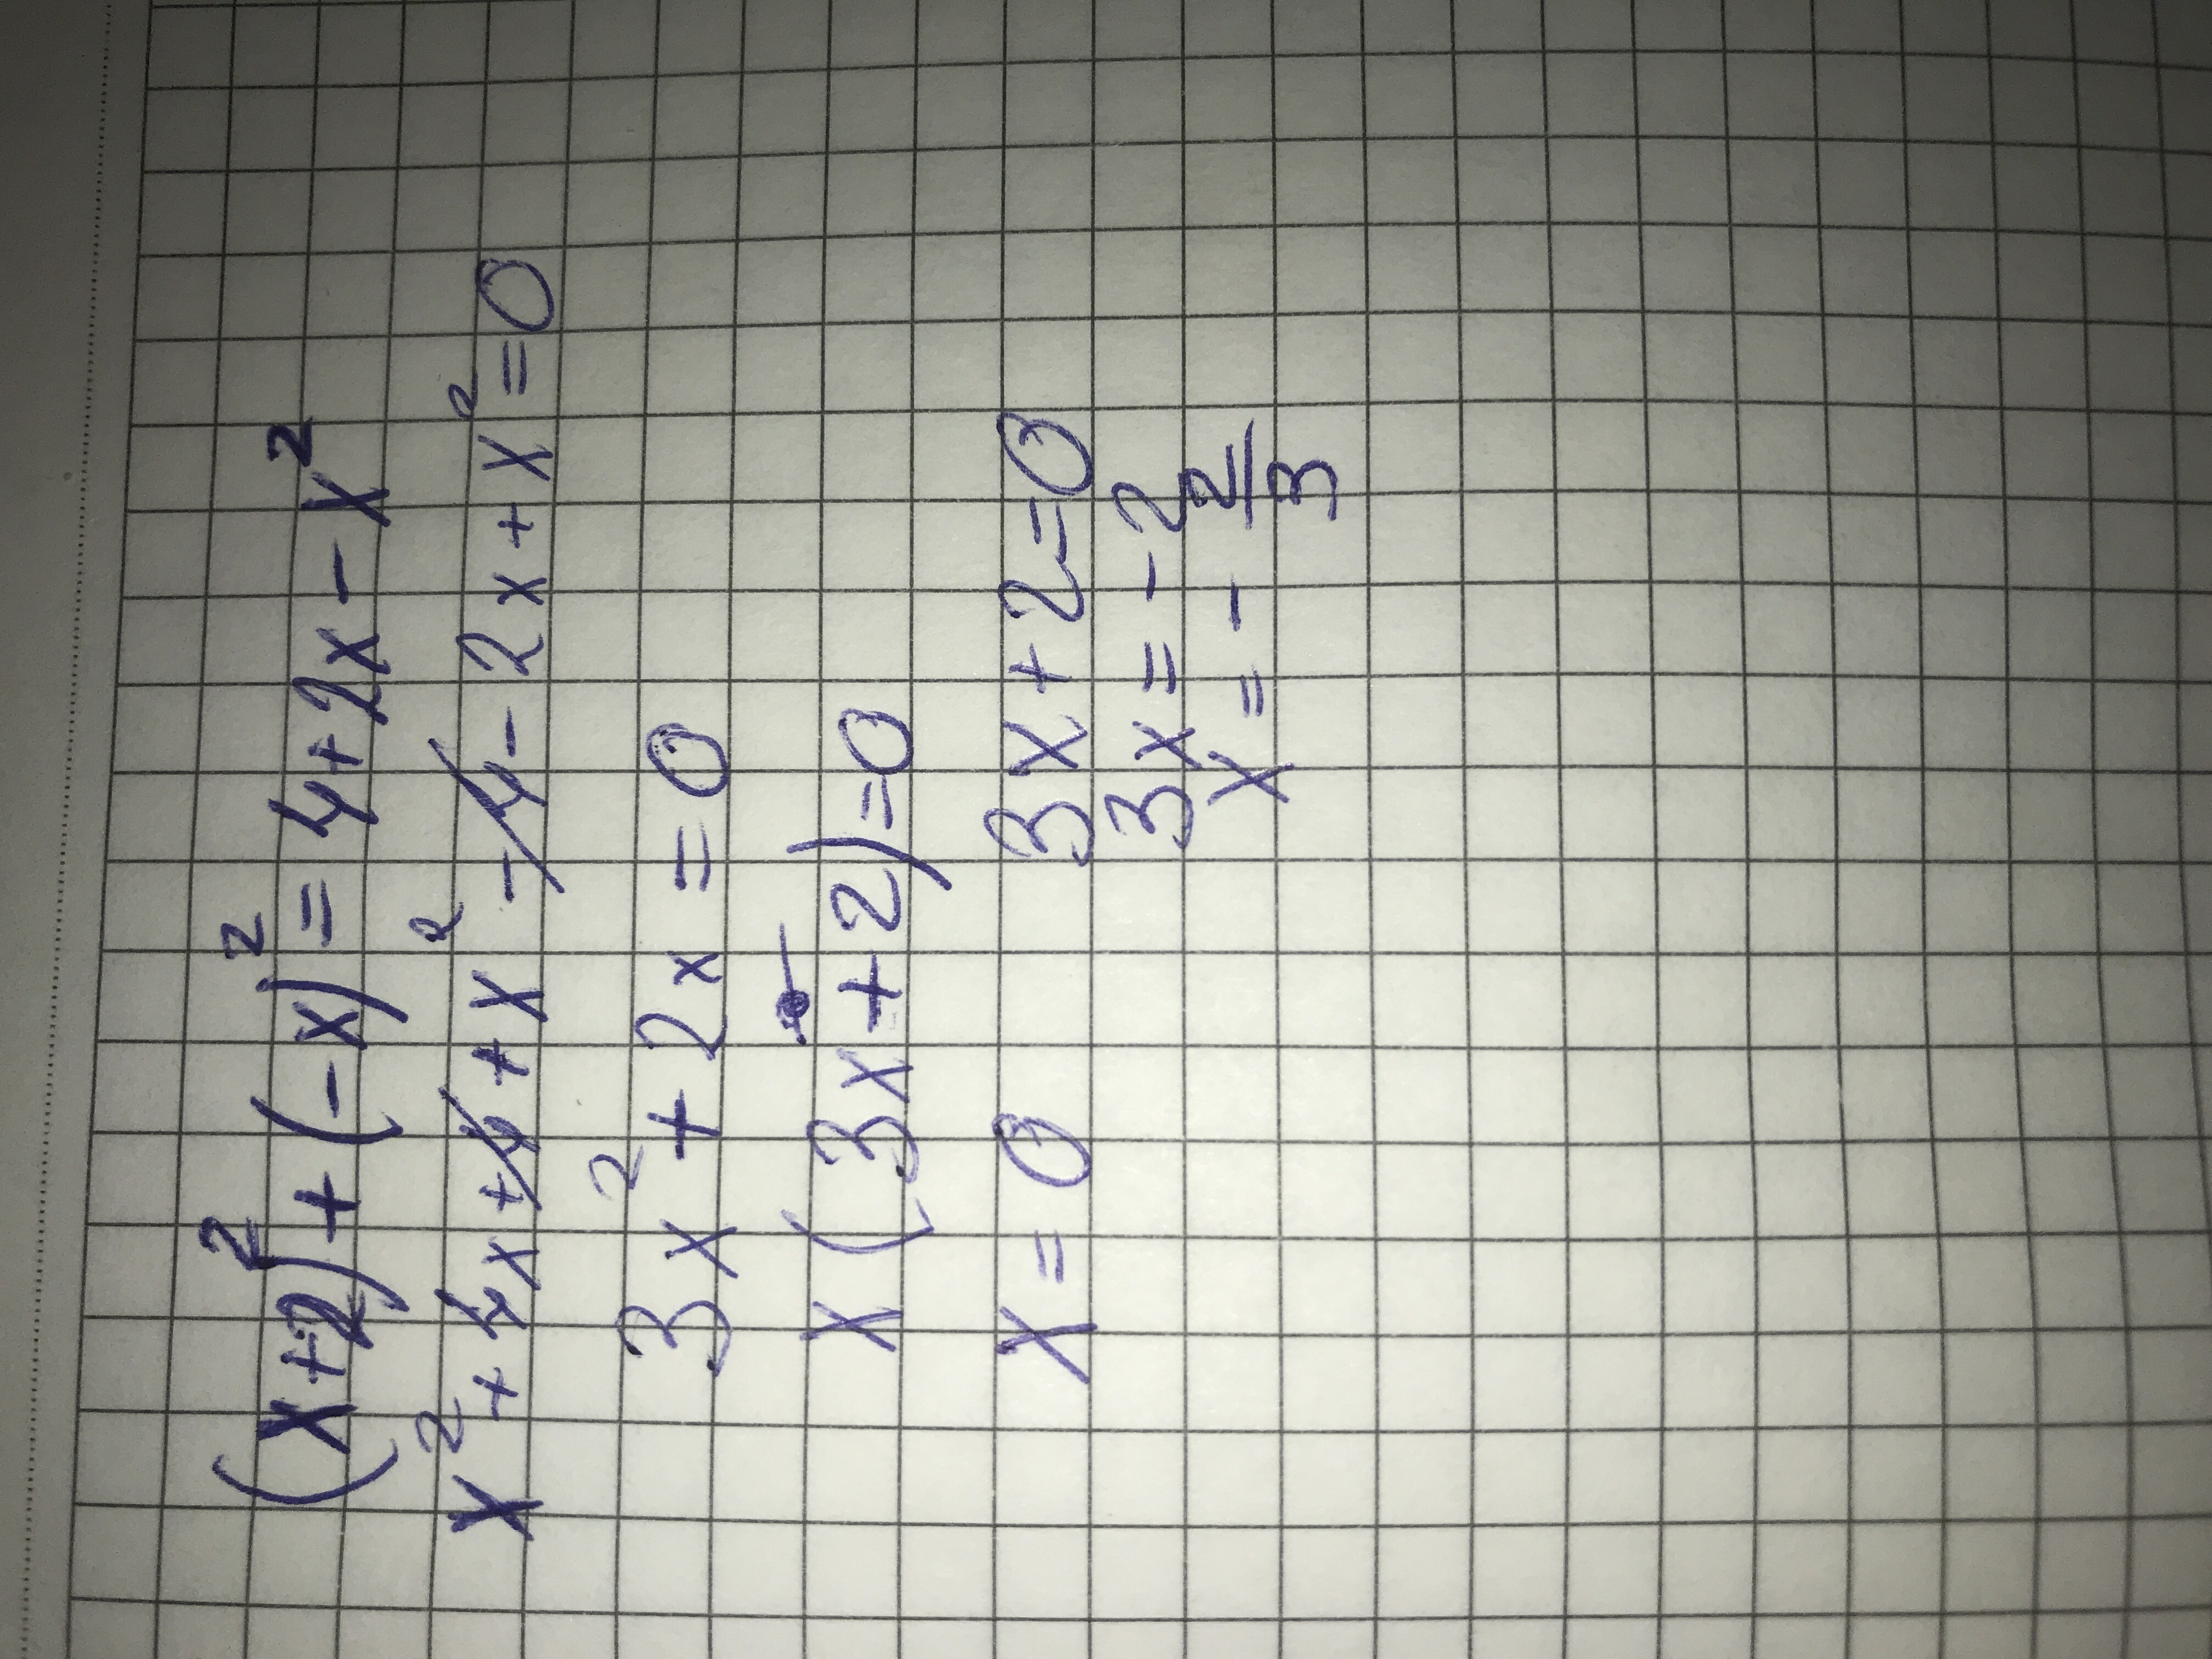 (x+2)² + (-x)² = 4+2x - x²
x² + 4x + 4 + x² - 4 - 2x + x² = 0
3x² + 2x = 0
x(3x+2)=0
x = 0 3x+2=0
3x = -2
x = - 2/3